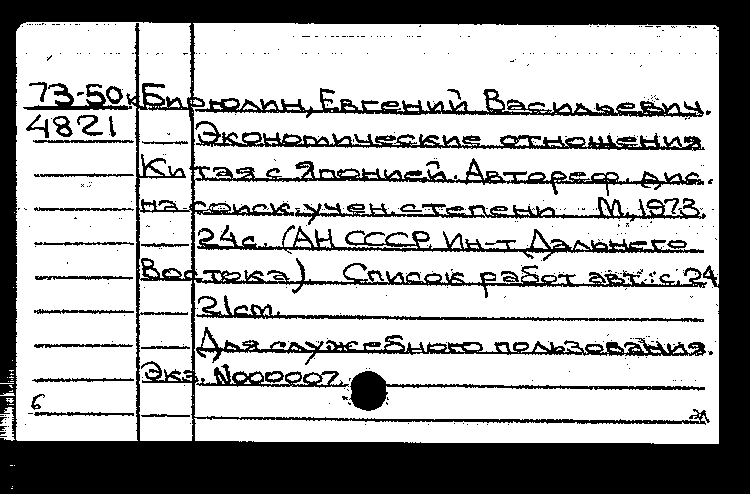 73-50к Бирюлин, Евгений Васильевич.
4821 Экономические отношения
Китая с Японией. Автореф. дис.
на соиск. учен. степени М., 1973.
24с. (АН СССР. Ин-т Дальнего
Востока). Список работ авт.: с. 24
21см.
Для служебного пользования.
Экз. N000007.
б